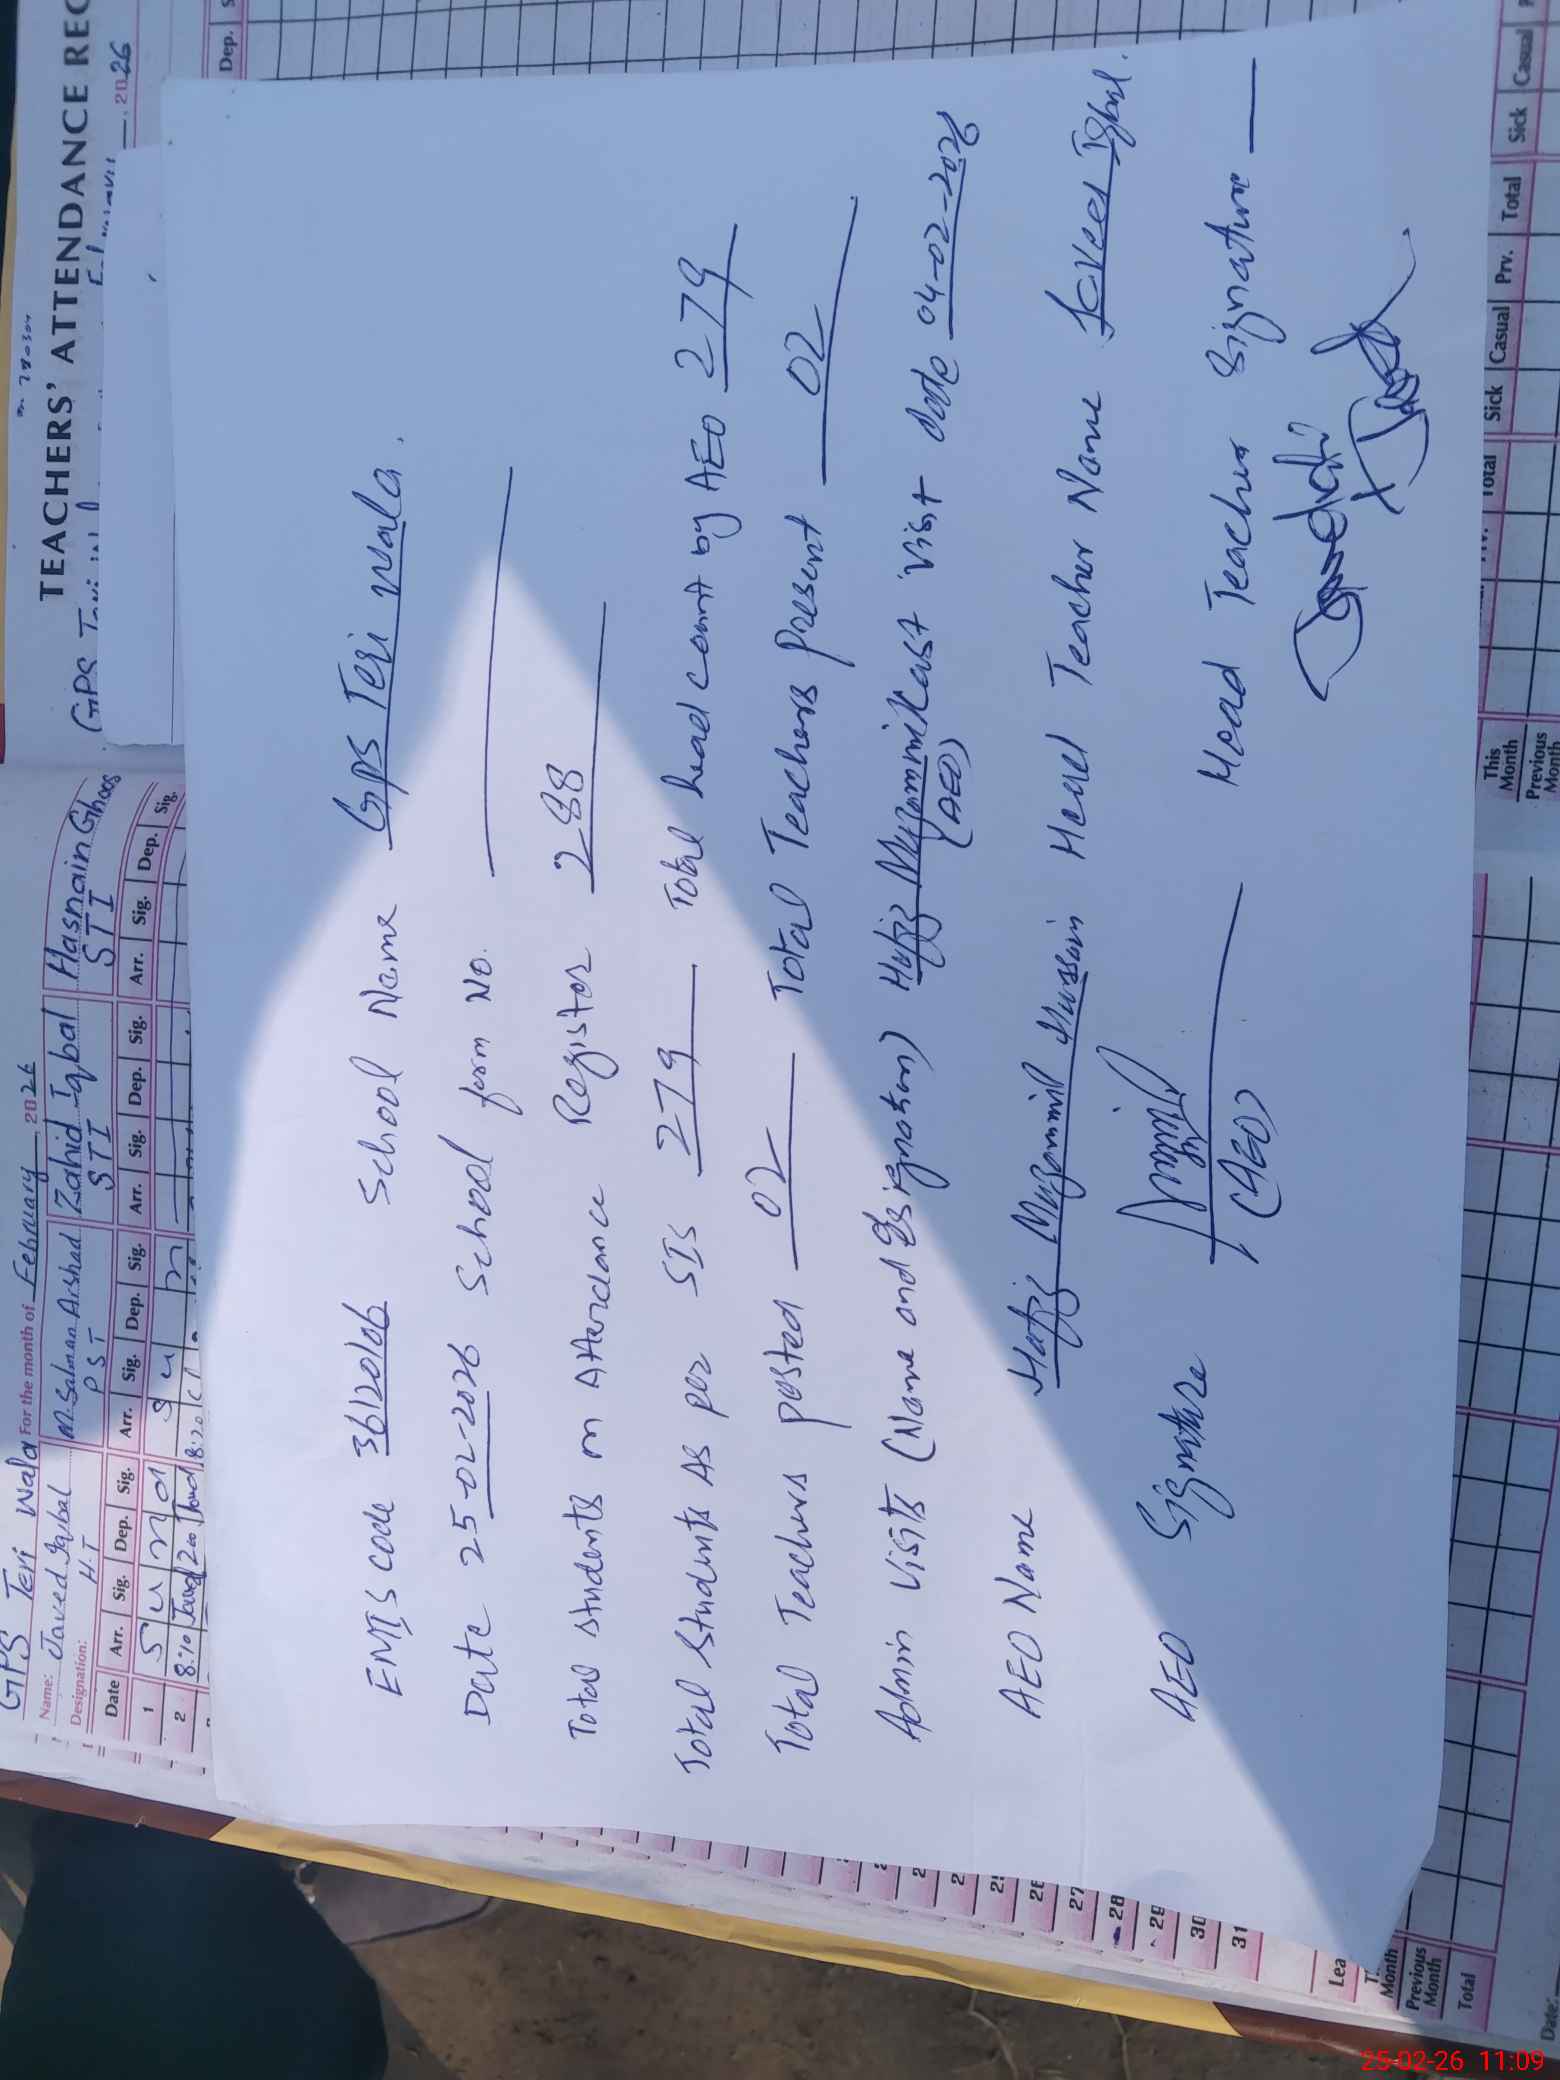 EMIS code 36120106 School Name Gps Teri wala.
Date 25-02-2026 School form No.
Total students on Attendance Register 288
Total students As per SIS 279 Total head count by AEO 279
Total Teachers posted 02 Total Teachers present 02
Admin visits (Name and Designation) Hafiz Muzammil Last visit date 04-02-2026
(AEO)
AEO Name Hafiz Muzammil Hussain Head Teacher Name Javeed Iqbal.
AEO Signature Head Teacher Signature
(AEO)
GPS Teri Wala For the month of February, 2026
Name: Javed Iqbal M. Salman Arshad Zahid Iqbal Hasnain Ghoos
Designation: H.T PST STI STI
Date Arr. Sig. Dep. Sig. Arr. Sig. Dep. Sig. Arr. Sig. Dep. Sig. Arr. Sig. Dep. Sig.
1 S u n d S u n
2 8:10 Javed 2:00 Javed 8:20
TEACHERS' ATTENDANCE REC
GPS Teri
, 2026
Dep. S
25
26
27
28
29
30
31
Lea
Month
Previous Month
Total
This Month
Previous Month
Sick Casual Prv. Total Sick Casual
Total
Date:
25-02-26 11:09